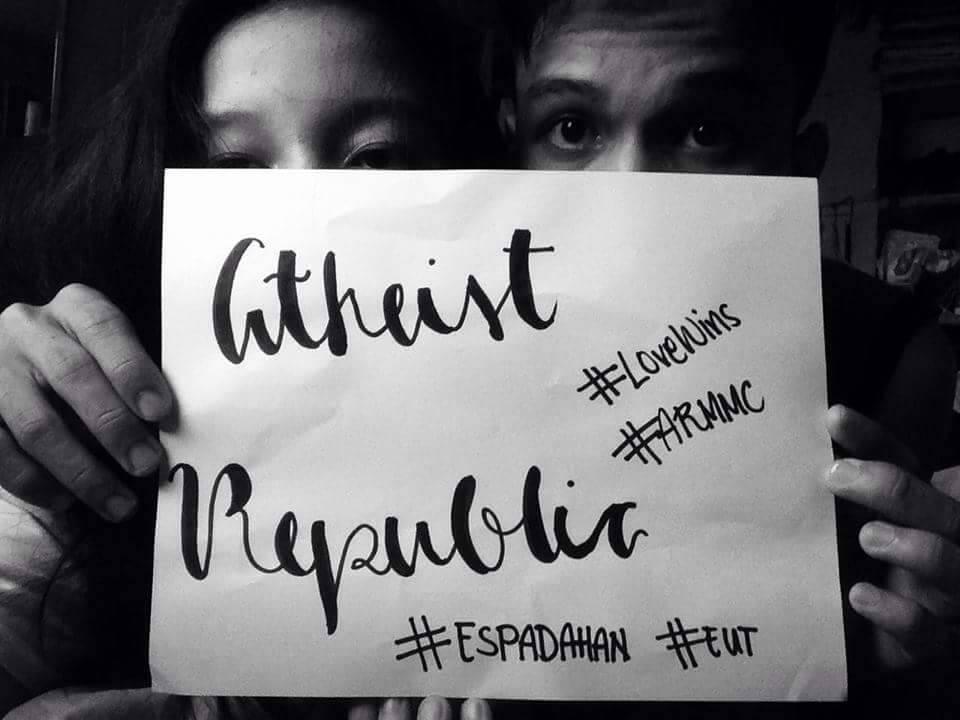 Atheist
#LoveWins
#ARMMC
Republic
#ESPADAHAN #EUT